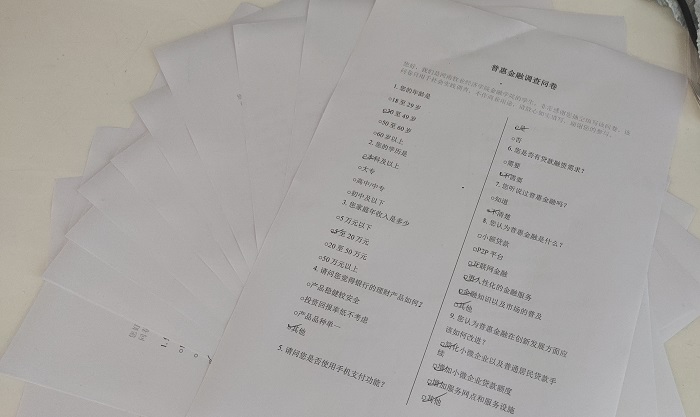 普惠金融调查问卷
您好，我们是河南牧业经济学院金融学院的学生，
1. 您的年龄是
○18 至 29岁
○30 至 49岁
○50 至 60岁
○60岁以上
2. 您的学历是
○本科及以上
○大专
○高中/中专
○初中及以下
3. 您家庭年收入是多少
○5万元以下
○5至 20万元
○20至 50万元
○50万元以上
4. 请问您觉得银行的理财产品如何?
○产品稳健较安全
○投资回报率低不考虑
○产品品种单一
○其他
5. 请问您是否使用手机支付功能？
○是
○否
6. 您是否有贷款融资需求？
○需要
○不需要
7. 您听说过普惠金融吗？
○知道
○不清楚
8. 您认为普惠金融是什么？
○小额贷款
○P2P 平台
○互联网金融
○更人性化的金融服务
○金融知识以及市场的普及
○其他
9. 您认为普惠金融在创新发展方面应
该如何改进？
○简化小微企业以及普通居民贷款手
续
○增加小微企业贷款额度
○增加服务网点和服务设施
○其他